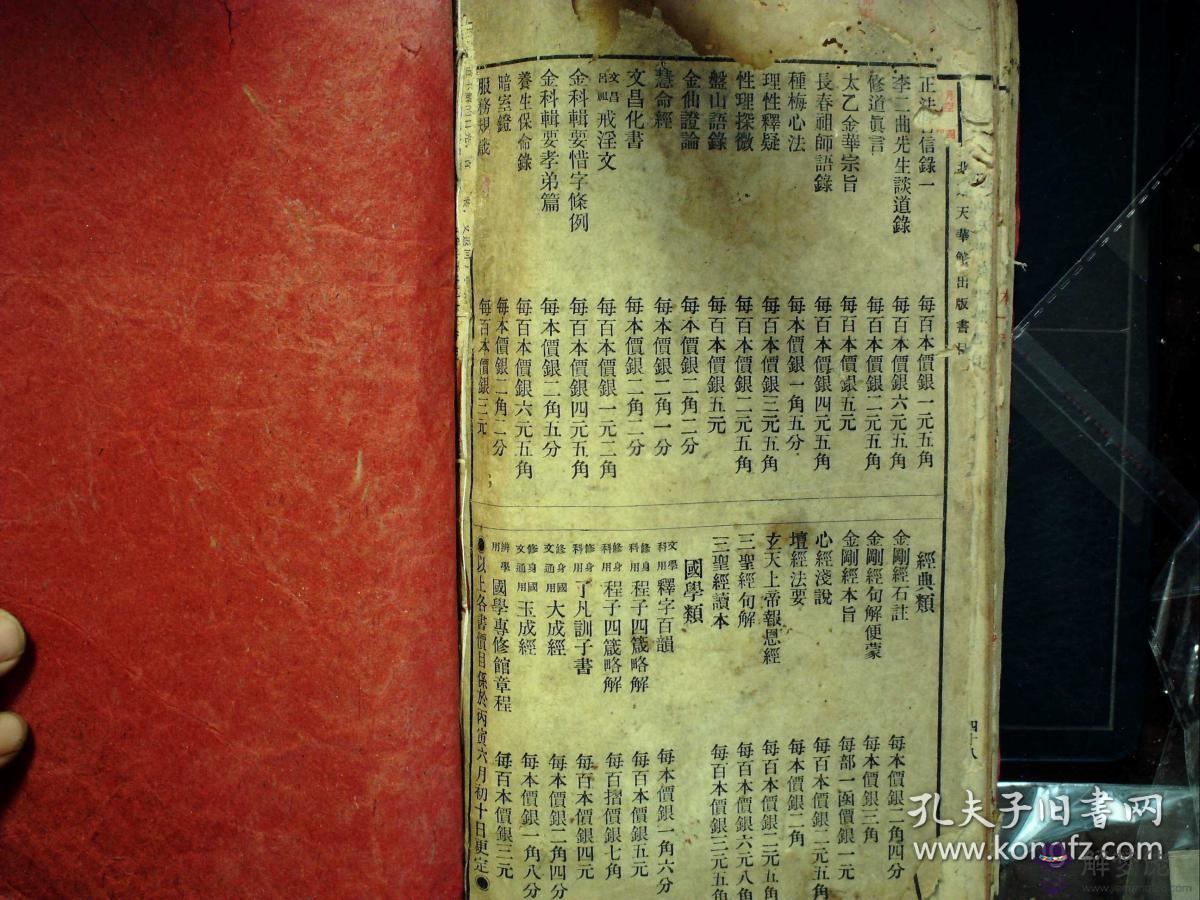 天華館出版書目
李二曲先生談道錄 每百本價銀六元五角
修道眞言 每百本價銀二元五角
太乙金華宗旨 每百本價銀五元
長春祖師語錄 每百本價銀四元五角
種梅心法 每本價銀一角五分
理性釋疑 每百本價銀三元五角
性理探微 每百本價銀二元五角
盤山語錄 每百本價銀五元
金仙證論 每本價銀二角二分
慧命經 每本價銀二角一分
文昌化書 每本價銀二角二分
文昌呂祖戒淫文 每百本價銀一元二角
金科輯要惜字條例 每百本價銀四元五角
金科輯要孝弟篇 每本價銀二角五分
養生保命錄 每百本價銀六元五角
暗室鐙 每本價銀二角二分
服務規箴 每百本價銀三元
經典類
金剛經石註 每本價銀二角四分
金剛經句解便蒙 每本價銀三角
金剛經本旨 每部一函價銀一元
心經淺說 每百本價銀二元五角
壇經法要 每本價銀二角
玄天上帝報恩經 每百本價銀二元五角
三聖經句解 每百本價銀六元八角
三聖經讀本 每百本價銀三元五角
國學類
文學科用釋字百韻 每本價銀一角六分
修身科用程子四箴略解 每百本價銀五元
修身科用程子四箴略解 每百摺價銀七角
修身科用了凡訓子書 每百本價銀四元
修身國文通用大成經 每本價銀二角四分
修身國文通用玉成經 每本價銀一角八分
辨學用國學專修館章程 每百本價銀三元
●以上各書價目係於丙寅六月初十日更定●
四十八
孔夫子旧书网
www.kongfz.com
解梦佬